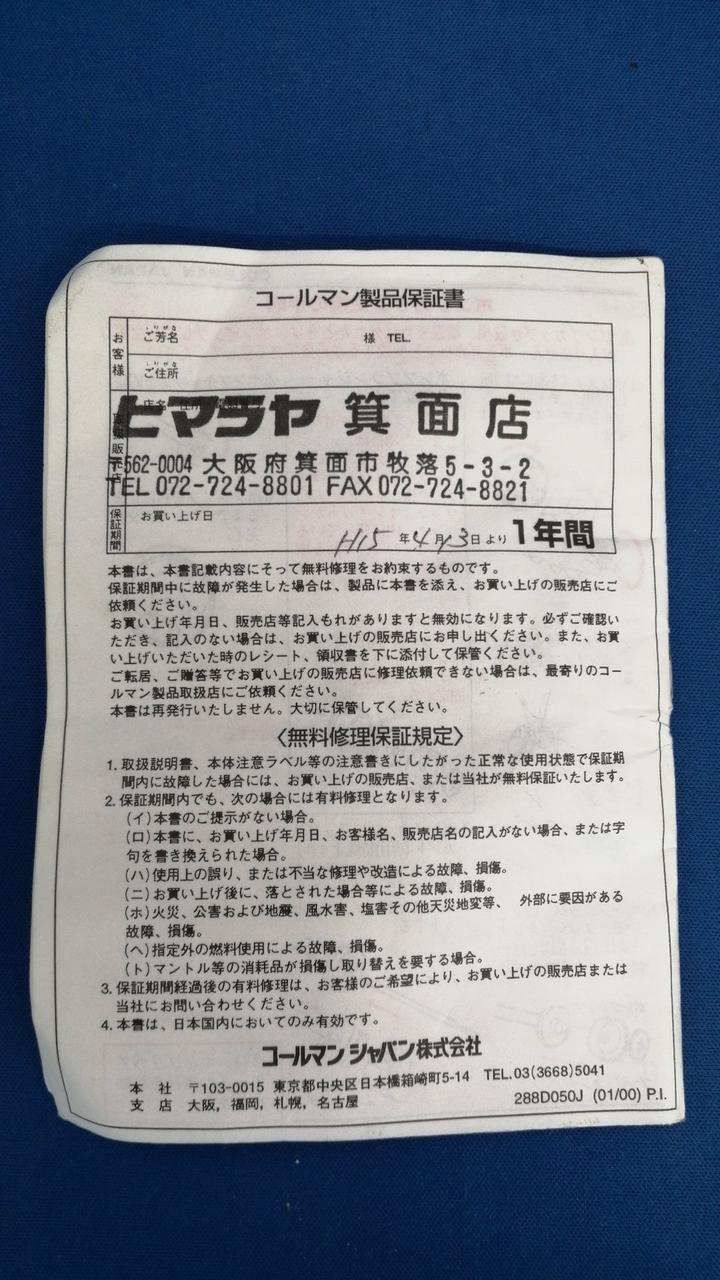 コールマン製品保証書
お客様
しりがな
ご芳名
様 TEL.
しりがな
ご住所
ヒマラヤ 箕面店
〒562-0004 大阪府箕面市牧落5-3-2
TEL 072-724-8801 FAX 072-724-8821
保証期間
お買い上げ日
H15 年 4 月 13 日より 1年間
本書は、本書記載内容にそって無料修理をお約束するものです。
保証期間中に故障が発生した場合は、製品に本書を添え、お買い上げの販売店にご
依頼ください。
お買い上げ年月日、販売店等記入もれがありますと無効になります。必ずご確認い
ただき、記入のない場合は、お買い上げの販売店にお申し出ください。また、お買
い上げいただいた時のレシート、領収書を下に添付して保管ください。
ご転居、ご贈答等でお買い上げの販売店に修理依頼できない場合は、最寄りのコー
ルマン製品取扱店にご依頼ください。
本書は再発行いたしません。大切に保管してください。
〈無料修理保証規定〉
1. 取扱説明書、本体注意ラベル等の注意書きにしたがった正常な使用状態で保証期
間内に故障した場合には、お買い上げの販売店、または当社が無料保証いたします。
2. 保証期間内でも、次の場合には有料修理となります。
(イ)本書のご提示がない場合。
(ロ)本書に、お買い上げ年月日、お客様名、販売店名の記入がない場合、または字
句を書き換えられた場合。
(ハ)使用上の誤り、または不当な修理や改造による故障、損傷。
(ニ)お買い上げ後に、落とされた場合等による故障、損傷。
(ホ)火災、公害および地震、風水害、塩害その他天災地変等、 外部に要因がある
故障、損傷。
(ヘ)指定外の燃料使用による故障、損傷。
(ト)マントル等の消耗品が損傷し取り替えを要する場合。
3. 保証期間経過後の有料修理は、お客様のご希望により、お買い上げの販売店または
当社にお問い合わせください。
4. 本書は、日本国内においてのみ有効です。
コールマン ジャパン株式会社
本 社 〒103-0015 東京都中央区日本橋箱崎町5-14 TEL.03(3668)5041
支 店 大阪, 福岡, 札幌, 名古屋
288D050J (01/00) P.I.